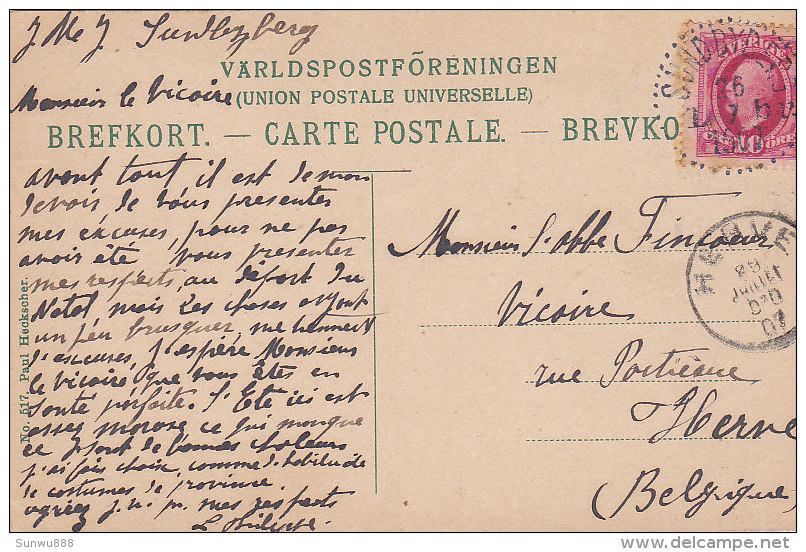 J M J Sundbyberg
VÄRLDSPOSTFÖRENINGEN
Monsieur le Vicaire
(UNION POSTALE UNIVERSELLE)
BREFKORT. — CARTE POSTALE. — BREVKO
SVERIGE
SUNDBYBERG
26
7
1907
10 ÖRE
avant tout il est de mon
devois de vous presenter
mes excuses pour ne pas
avoir été vous presenter
mes respects, au départ du
mais les choses
un peu brusquer, me
d'excuses, j'espère Monsieur
le Vicaire que vous êtes en
santé parfaite. L'Eté ici est
assez morose ce qui manque
ce sont de bonnes chaleurs
j'ai fais choix, comme d'habitude
de costumes de province.
agréez mes respects
L Philippe.
Monsieur l'abbé Fincoeur
Vicaire
rue Potiérue
Herve
(Belgique)
HERVE
JUILLET
07
No. 517. Paul Heckscher.
Sunwu888
delcampe.net